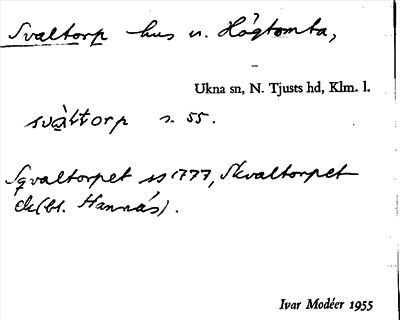 Svaltorp hus u. Högtomta,
Ukna sn, N. Tjusts hd, Klm. l.
svàltorp s. 55.
Sqvaltorpet ss 1777, Skvaltorpet
ek (bl. Hannäs).
Ivar Modéer 1955